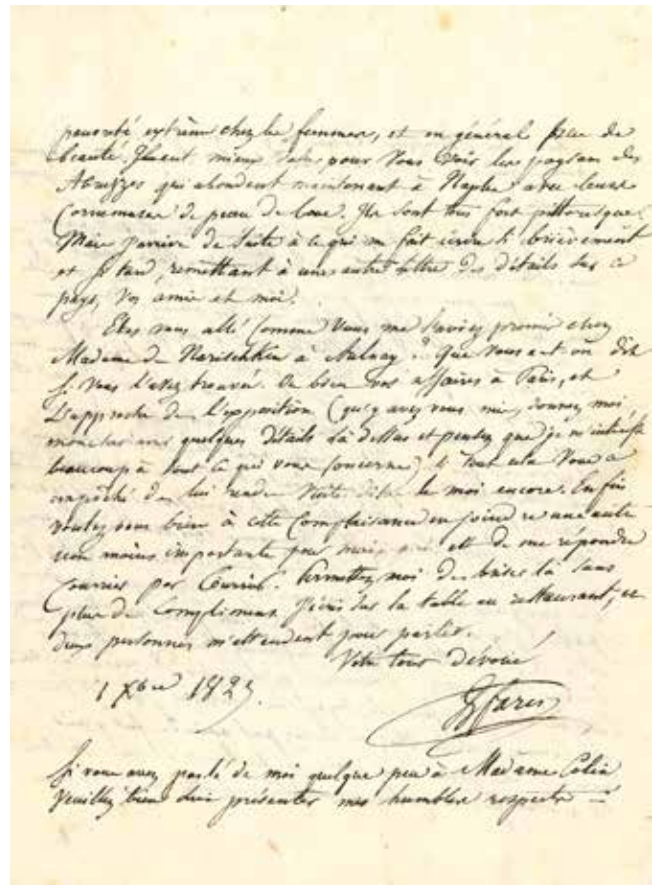 pauvreté extrême chez les femmes, et en général peu de
beauté. Ils ont mieux pour vous voir les paysans des
Abruzzes qui abondent maintenant à Naples avec leurs
Cornemuses de peau de bouc. Ils sont tous fort pittoresques.
Mais j'arrive de suite à ce qui me fait écrire si brièvement
et si tard, remettant à une autre lettre des détails sur ce
pays, vos amis et moi.
Etes vous allé comme vous me l'aviez promis chez
Madame de Narischkin à Aulnay? Que vous a t on dit
si vous l'avez trouvée. Ou bien vos affaires à Paris, et
L'approche de l'exposition (qu'y avez vous mis, donnez moi
quelques détails là dessus et pensez que je m'intéresse
beaucoup à tout ce qui vous concerne) si tout cela vous a
empêché de lui rendre visite dites le moi encore. Enfin
voulez vous bien à cette Complaisance en joindre une autre
non moins importante pour moi et de me répondre
Courrier par Courrier. Permettez moi de briser là sans
plus de Compliments j'écris sur la table au restaurant, et
deux personnes m'attendent pour partir.
Votre tout dévoué
1 Xbre 182
Si vous avez parlé de moi quelque peu à Madame Colin
Veuillez bien lui présenter mes humbles respects